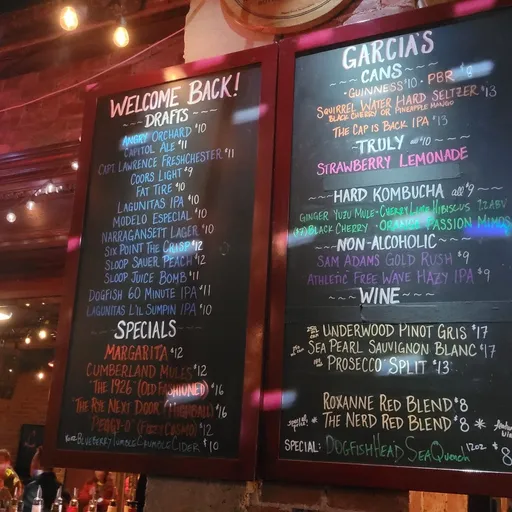 WELCOME BACK!
DRAFTS
ANGRY ORCHARD $10
CAPITOL ALE $11
CAPT. LAWRENCE FRESHCHESTER $11
COORS LIGHT $9
FAT TIRE $10
LAGUNITAS IPA $10
MODELO ESPECIAL $10
NARRAGANSETT LAGER $10
SIX POINT THE CRISP $12
SLOOP SAUER PEACH $12
SLOOP JUICE BOMB $11
DOGFISH 60 MINUTE IPA $11
LAGUNITAS LI'L SUMPIN IPA $10
SPECIALS
MARGARITA $12
CUMBERLAND MULES $12
THE 1926 (OLD FASHIONED) $16
THE RYE NEXT DOOR (HIGHBALL) $16
$12
BLUEBERRY CRUMBLE CIDER $10
GARCIA'S
CANS
GUINNESS $10 · PBR $8
SQUIRREL WATER HARD SELTZER $13
BLACK CHERRY OR PINEAPPLE MANGO
THE CAP IS BACK IPA $13
TRULY $10
STRAWBERRY LEMONADE
HARD KOMBUCHA all $9
GINGER YUZU MULE · CHERRY LIME HIBISCUS
BLACK CHERRY · ORANGE PASSION MIMOSA
NON-ALCOHOLIC
SAM ADAMS GOLD RUSH $9
ATHLETIC FREE WAVE HAZY IPA $9
WINE
UNDERWOOD PINOT GRIS $17
SEA PEARL SAUVIGNON BLANC $17
PROSECCO SPLIT $13
ROXANNE RED BLEND $8
THE NERD RED BLEND $8
SPECIAL: DOGFISHHEAD SEAQUENCH 12oz $8